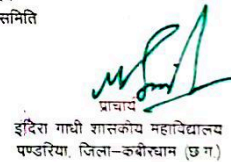 समिति
प्राचार्य
इंदिरा गांधी शासकीय महाविद्यालय
पण्डरिया, जिला–कबीरधाम (छ.ग.)